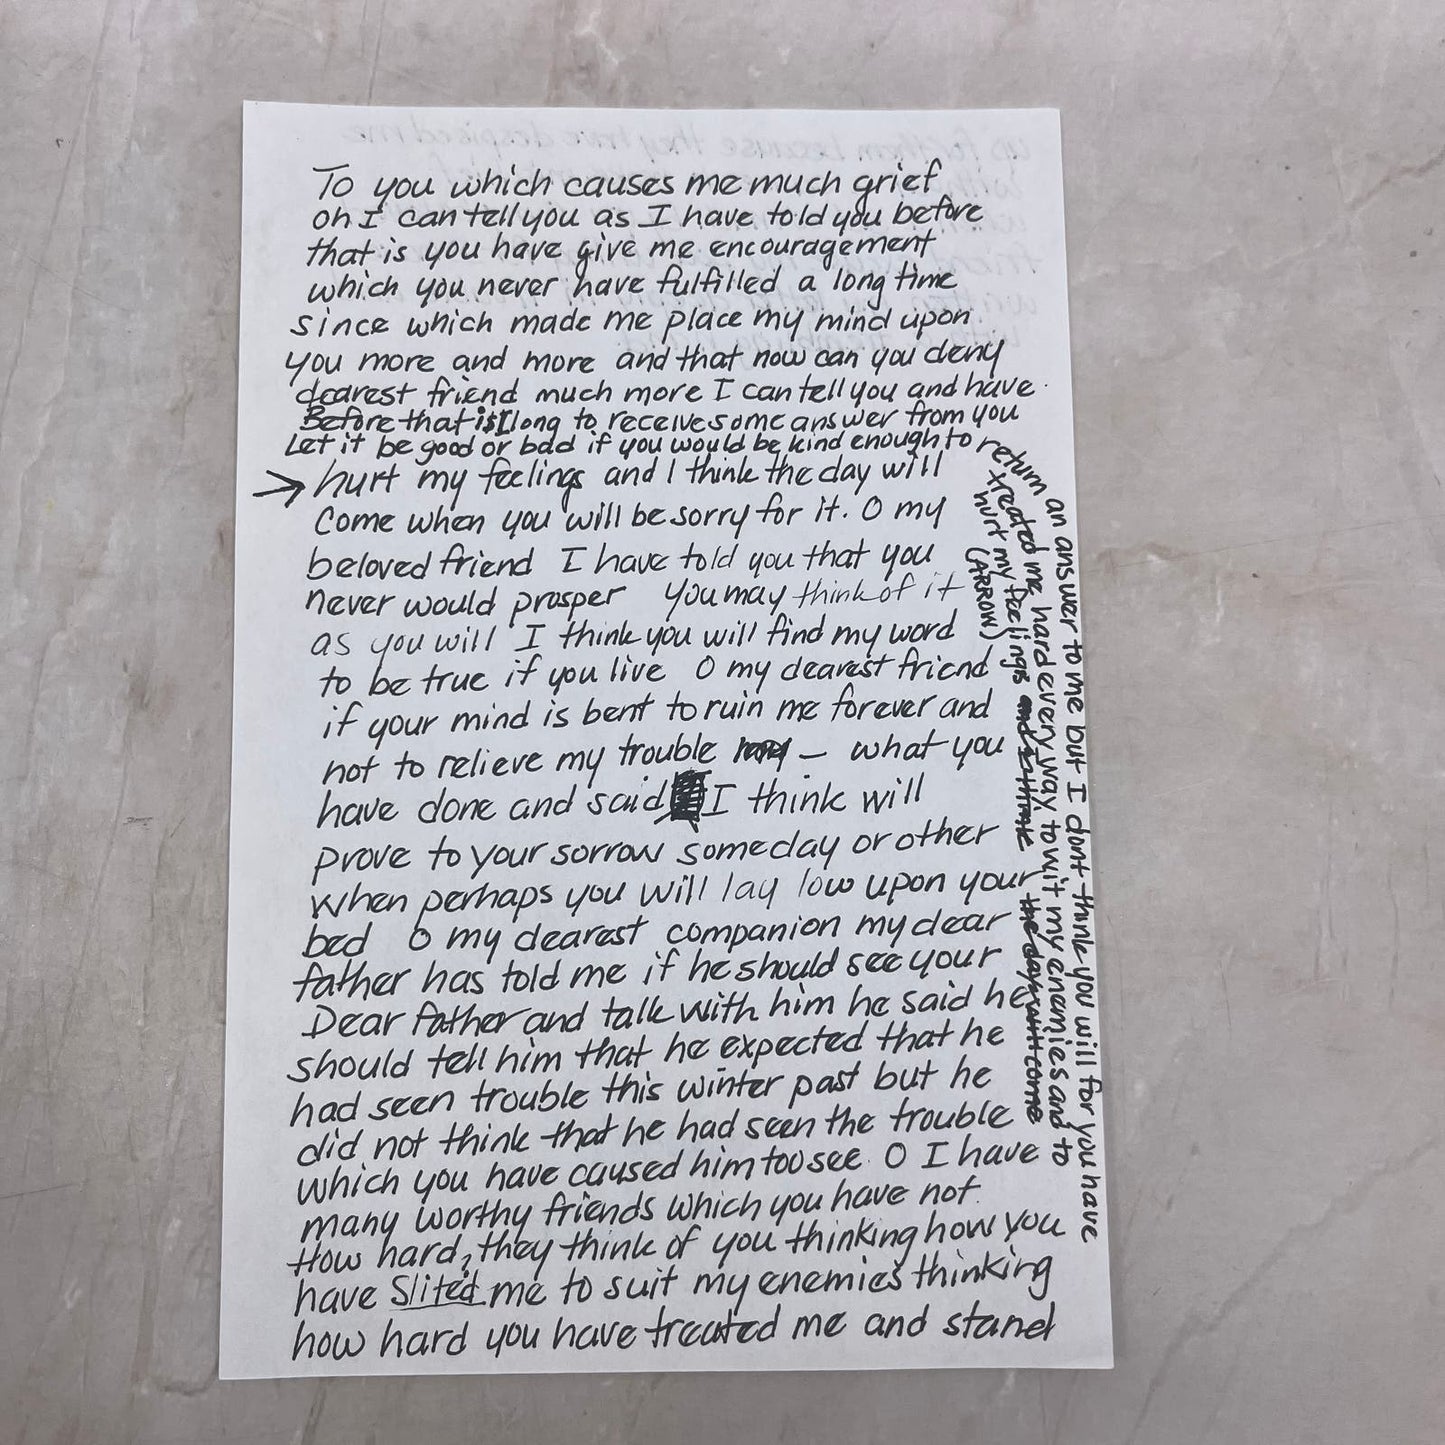 To you which causes me much grief
oh I can tell you as I have told you before
that is you have give me encouragement
which you never have fulfilled a long time
since which made me place my mind upon
you more and more and that now can you deny
dearest friend much more I can tell you and have
Before that is I long to receive some answer from you
Let it be good or bad if you would be kind enough to
return an answer to me but I dont think you will for you have
treated me hard every way. to wit my enemies and to
hurt my feelings and I think the day will come
(ARROW)
→ hurt my feelings and I think the day will
come when you will be sorry for it. O my
beloved friend I have told you that you
never would prosper you may think of it
as you will I think you will find my word
to be true if you live O my dearest friend
if your mind is bent to ruin me forever and
not to relieve my trouble — what you
have done and said I think will
prove to your sorrow someday or other
when perhaps you will lay low upon your
bed O my dearest companion my dear
father has told me if he should see your
Dear father and talk with him he said he
should tell him that he expected that he
had seen trouble this winter past but he
did not think that he had seen the trouble
which you have caused him too see O I have
many worthy friends which you have not.
How hard, they think of you thinking how you
have Slited me to suit my enemies thinking
how hard you have treated me and stand